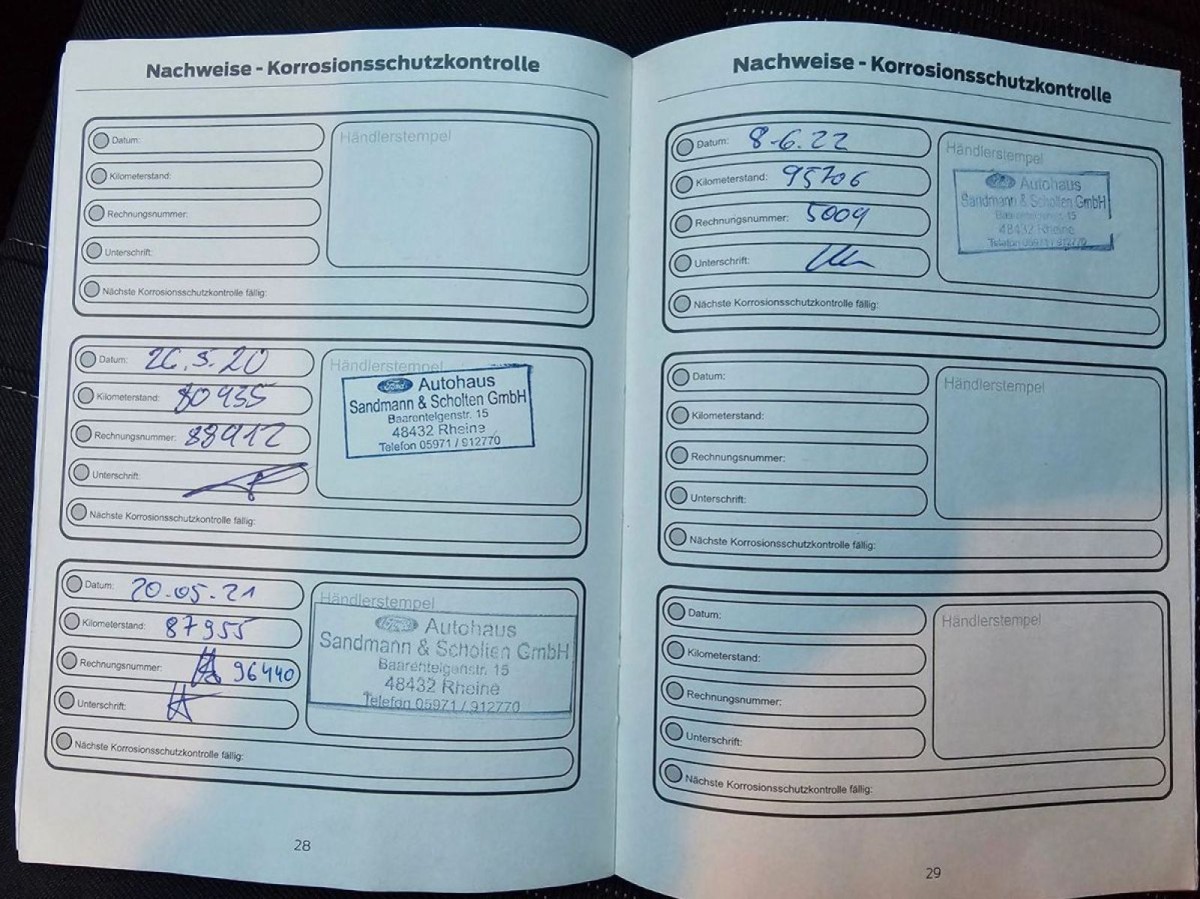 Nachweise - Korrosionsschutzkontrolle
Datum:
Kilometerstand:
Rechnungsnummer:
Unterschrift:
Händlerstempel
Nächste Korrosionsschutzkontrolle fällig:
Datum: 26.5.20
Kilometerstand: 80435
Rechnungsnummer: 88912
Unterschrift:
Händlerstempel
Ford Autohaus
Sandmann & Scholten GmbH
Baarentelgenstr. 15
48432 Rheine
Telefon 05971 / 912770
Nächste Korrosionsschutzkontrolle fällig:
Datum: 20.05.21
Kilometerstand: 87955
Rechnungsnummer: 96440
Unterschrift:
Händlerstempel
Ford Autohaus
Sandmann & Scholten GmbH
Baarentelgenstr. 15
48432 Rheine
Telefon 05971 / 912770
Nächste Korrosionsschutzkontrolle fällig:
28
Nachweise - Korrosionsschutzkontrolle
Datum: 8-6.22
Kilometerstand: 95706
Rechnungsnummer: 5009
Unterschrift:
Händlerstempel
Autohaus
Sandmann & Scholten GmbH
Baarentelgenstr. 15
48432 Rheine
Telefon 05971 / 912770
Nächste Korrosionsschutzkontrolle fällig:
Datum:
Kilometerstand:
Rechnungsnummer:
Unterschrift:
Händlerstempel
Nächste Korrosionsschutzkontrolle fällig:
Datum:
Kilometerstand:
Rechnungsnummer:
Unterschrift:
Händlerstempel
Nächste Korrosionsschutzkontrolle fällig:
29